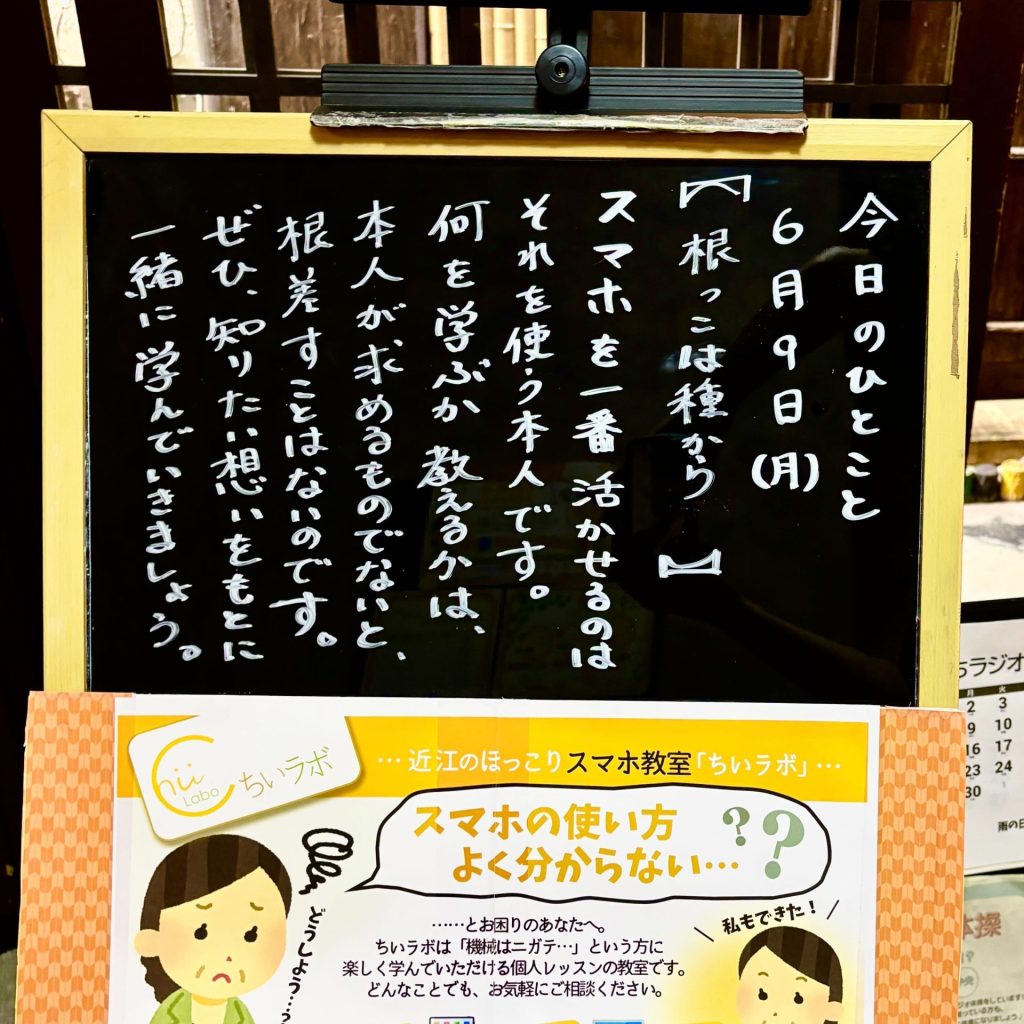 今日のひとこと
6月9日(月)
【根っこは種から】
スマホを一番活かせるのは
それを使う本人です。
何を学ぶか教えるかは、
本人が求めるものでないと、
根差すことはないのです。
ぜひ、知りたい想いをもとに
一緒に学んでいきましょう。
Chii Labo
ちいラボ
…近江のほっこりスマホ教室「ちいラボ」…
スマホの使い方
よく分からない…??
どうしよう…?
……とお困りのあなたへ。
ちいラボは「機械はニガテ…」という方に
楽しく学んでいただける個人レッスンの教室です。
どんなことでも、お気軽にご相談ください。
私もできた!
ちラジオ
月 火
2 3
9 10
16 17
23 24
30 1
雨の日
体操